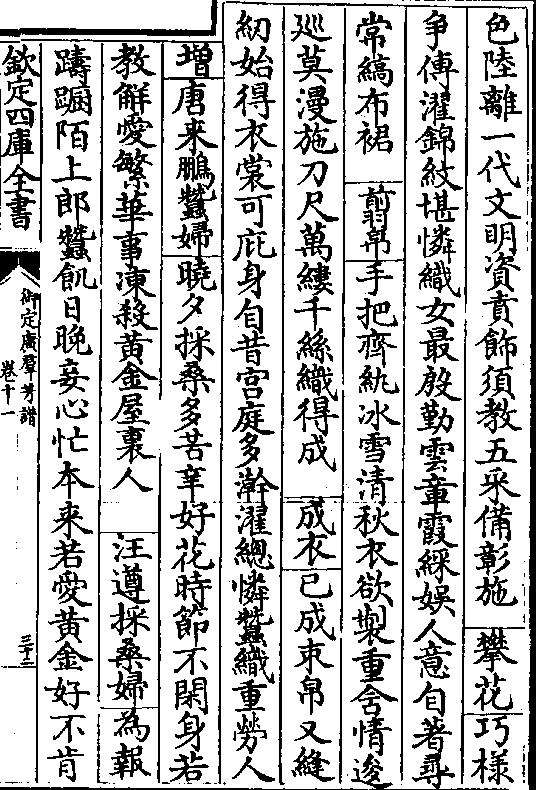 色陸離一代文明資賁飾須教五采備彰施　攀花巧樣
争傳濯錦紋堪憐織女最殷勤雲章霞綵娱人意自著尋
常縞布裙　剪帛手把齊紈冰雪清秋衣欲製重含情逡
巡莫漫施刀尺萬縷千絲織得成　成衣已成束帛又縫
紉始得衣裳可庇身自昔宫庭多澣濯總憐蠶織重勞人
增唐来鵬蠶婦曉夕採桑多苦辛好花時節不閑身若
教解愛繁華事凍殺黄金屋裏人　汪遵採桑婦為報
躊蹰陌上郎蠶飢日晚妾心忙本来若愛黄金好不肯
欽定四庫全書
御定廣羣芳譜
卷十一
三十二